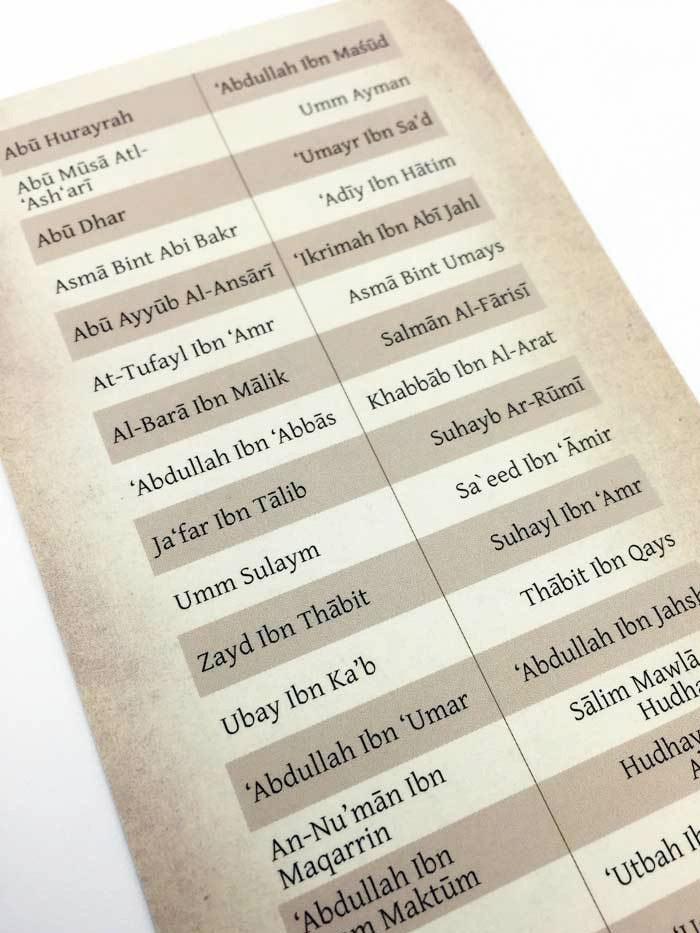 Abū Hurayrah
Abū Mūsā Atl-
‘Ash‘arī
Abū Dhar
Asmā Bint Abi Bakr
Abū Ayyūb Al-Ansārī
At-Tufayl Ibn ‘Amr
Al-Barā Ibn Mālik
‘Abdullah Ibn ‘Abbās
Ja‘far Ibn Tālib
Umm Sulaym
Zayd Ibn Thābit
Ubay Ibn Ka’b
‘Abdullah Ibn ‘Umar
An-Nu’mān Ibn
Maqarrin
‘Abdullah Ibn
Maktūm
‘Abdullah Ibn Maśūd
Umm Ayman
‘Umayr Ibn Sa’d
‘Adīy Ibn Hātim
‘Ikrimah Ibn Abī Jahl
Asmā Bint Umays
Salmān Al-Fārisī
Khabbāb Ibn Al-Arat
Suhayb Ar-Rūmī
Sa`eed Ibn ‘Āmir
Suhayl Ibn ‘Amr
Thābit Ibn Qays
‘Abdullah Ibn
Sālim Mawlā
‘Utbah